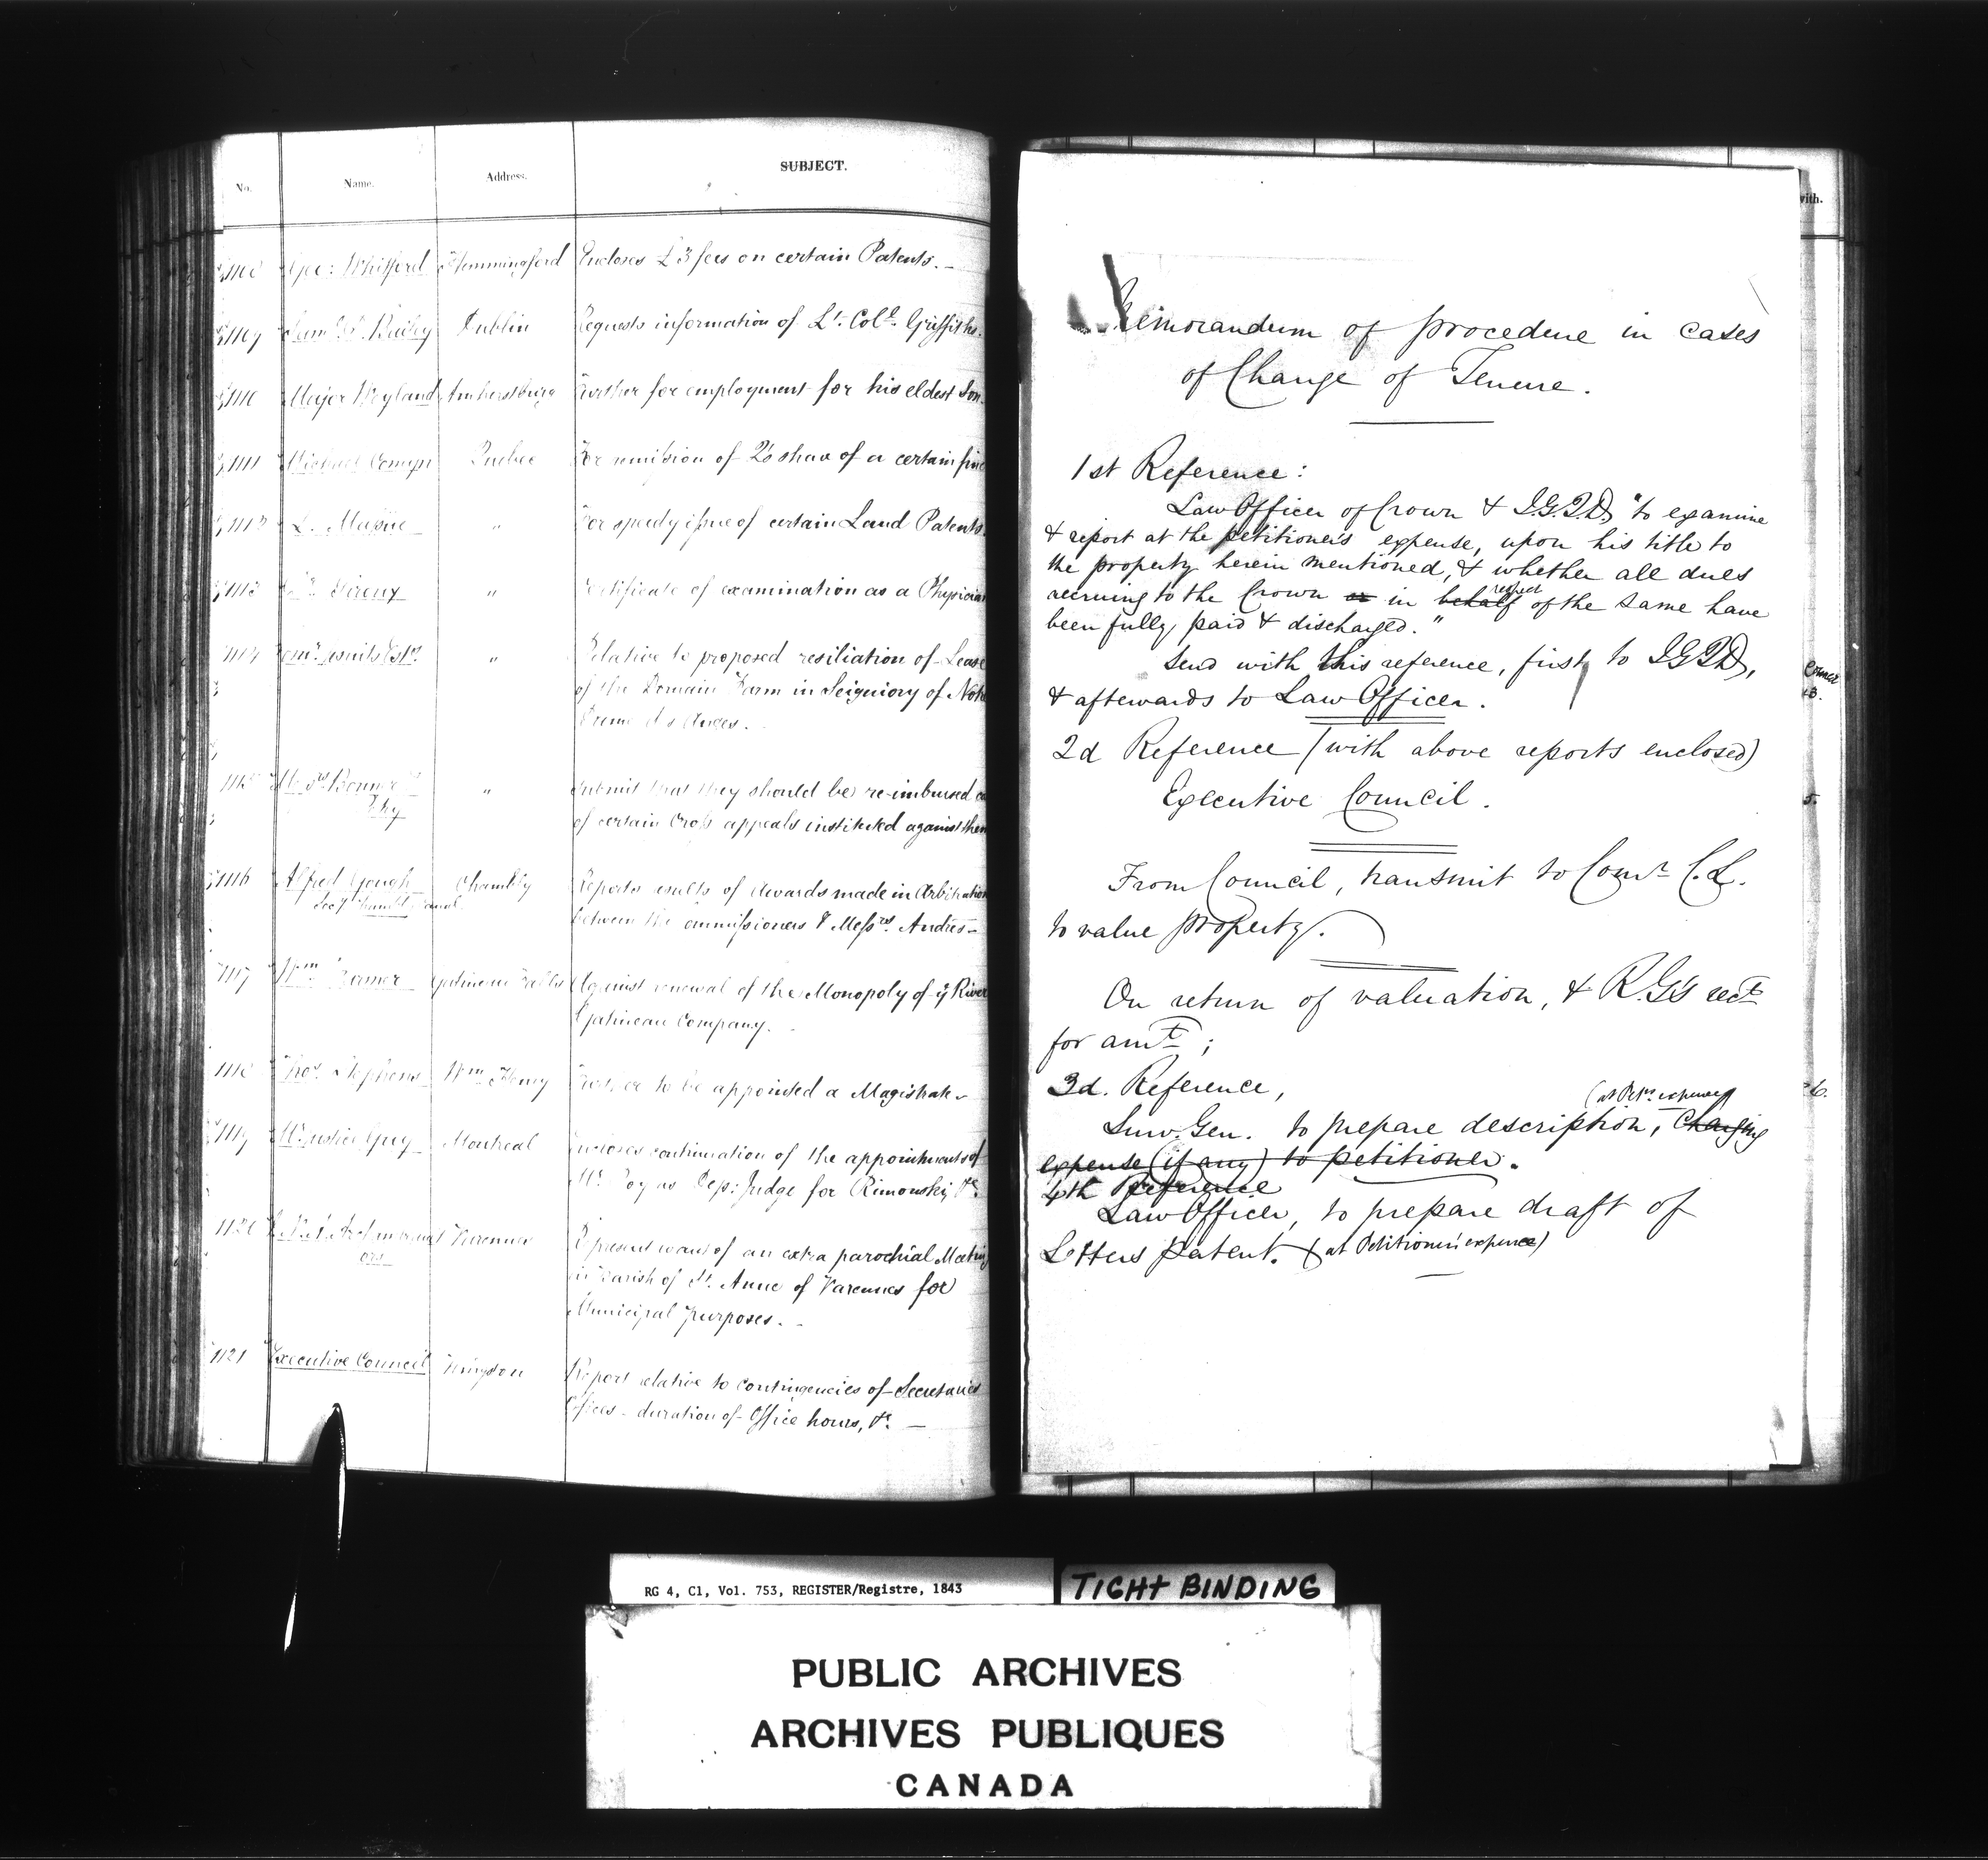 No. Name. Address. SUBJECT.
1108 Geo: Whifford Hemmingford Encloses £3 fees on certain Patents. –
1109 Bailey Dublin Requests information of Lt. Coll. Griffiths.
1110 Major Amherstburg Further for employment for his eldest Son.
1111 Michael Comyn Quebec For remission of share of a certain fine
L. " For speedy issue of certain Land Patents.
1113 " Certificate of examination as a Physician
1114 " Relative to proposed resiliation of Lease
of the Domain Farm in Seigniory of Notre
Dame des Anges. –
1115 Bonner " Submit that they should be re-imbursed
of certain Cross appeals instituted against them
1116 Alfred Gough Chambly Reports results of Awards made in Arbitration
Secy Canal between the Commissioners & Messrs. Andres –
1117 Wm Gatineau Falls Against renewal of the Monopoly of ye River
Gatineau Company. –
1118 Thos. Stephens Wm Henry to be appointed a Magistrate –
1119 Montreal Encloses continuation of the appointments of
Mr. as Dep: Judge for Rimouski, &c.
1120 Varennes Represent want of an extra parochial Meeting
in Parish of St. Anne of Varennes for
Municipal purposes. –
1121 Executive Council Kingston Report relative to Contingencies of Secretaries
Offices – duration of Office hours, &c. –
with.
Memorandum of procedure in cases
of Change of Tenure.
1st Reference:
Law Officer of Crown & I.G.Q.D. "to examine
& report at the petitioner's expense, upon his title to
the property herein mentioned, & whether all dues
respect
accruing to the Crown or in behalf of the same have
been fully paid & discharged."
Send with this reference, first to IGQD,
& afterwards to Law Officer.
2d Reference (with above reports enclosed)
Executive Council.
From Council, transmit to Comr. C.L.
to value property.
On return of valuation, & R.G's rect
for amt ;
3d. Reference,
(at Petrs. expense)
Surv. Gen. to prepare description, Charging
expense (if any) to petitioner.
4th Reference
Law Officer, to prepare draft of
Letters Patent. (at Petitioner's expense)
RG 4, C1, Vol. 753, REGISTER/Registre, 1843
TIGHT BINDING
PUBLIC ARCHIVES
ARCHIVES PUBLIQUES
CANADA